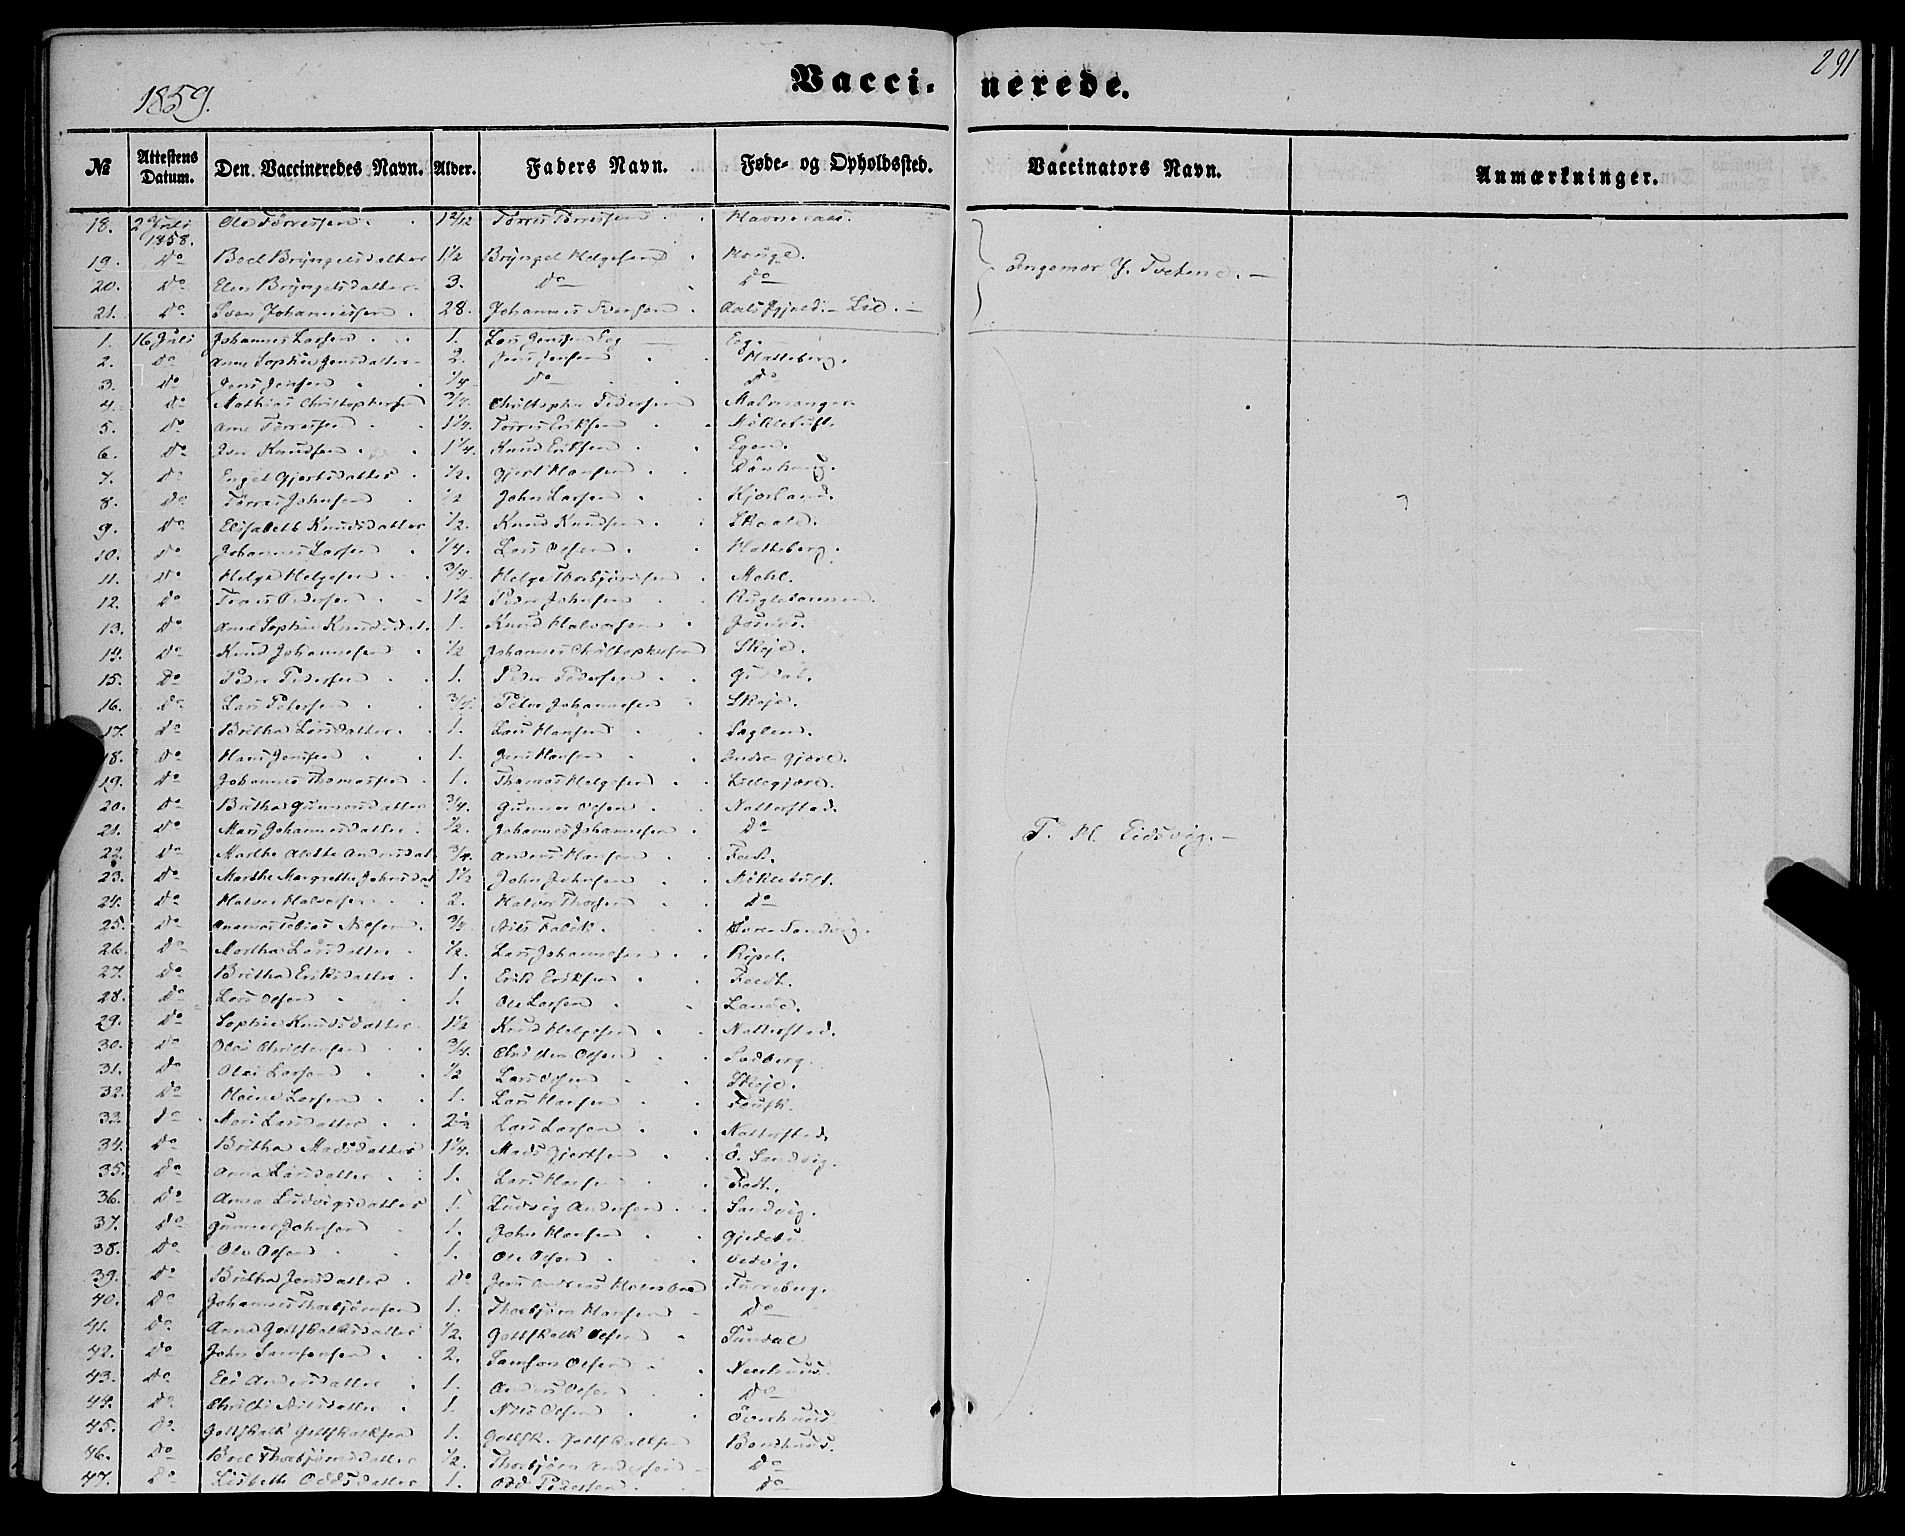 291
1859.
Vacci- nerede.
№ Attestens Datum. Den Vaccineredes Navn. Alder. Faders Navn. Føde- og Opholdssted. Vaccinators Navn. Anmærkninger.
18. 2 Juli 1858. Ole Tørressen. Tørres Tørressen
19. Do Boel Bryngelsdatter 1½ Bryngel Helgesen Houge.
20. Do Elen Bryngelsdatter 3. Do Do
Ingemar J. Tvetene.
21. Do Sven Johannessen 28. Johannes Svensen Lid.
1. 16 Juli Johannes Larsen 1. Lars Jensen Eeg Eeg.
2. Do Anne Sophie Jensdatter 2. Jens Jensen Hatteberg.
3. Do Jens Jensen ¼ Do Do
4. Do Mathias Christophersen ¾. Christopher Pedersen Malmanger
5. Do Arne Tørressen 1¼. Tørres Eriksen Mökletuft.
6. Do Iver Knudsen 1¼. Knud Eriksen
7. Do Engel Gjertsdatter ½. Gjert Hansen
8. Do Tørres Johnsen ½ John Larsen Kjerland.
9. Do Elisabeth Knudsdatter ½. Knud Knudsen Skaale.
10. Do Johannes Larsen ¼. Lars Olsen Hatteberg.
11. Do Helge Helgesen ¾. Helge Thorbjørnsen Mehl.
12. Do 1½ Peder Johnsen
13. Do Anne Sophie Knudsdat. 1. Knud Halvorsen
14. Do Knud Johannesen ½ Johannes Christophersen Skeje.
15. Do Peder Pedersen 1. Peder Pedersen Guddal.
16. Do Lars Petersen ¾. Peter Johannesen Skeje.
17. Do Britha Larsdatter 1. Lars Hansen
18. Do Hans Jensen 1. Jens Hansen
19. Do Johannes Thomassen 1. Thomas Helgesen
20. Do Britha Gunnarsdatter ¾. Gunnar Olsen Natterstad.
21. Do Mari Johannesdatter ½. Johannes Johannesen Do
T. H. Eidsvig.
22. Do Marthe Andersdat ¾. Anders Hansen
23. Do Marthe Margrethe Johnsdat 1½ John Johnsen Mökletuft.
24. Do Halvor Halvorsen 2. Halvor Do
25. Do Tobias Nilsen ¾. Nils Sandvig.
26. Do Martha Larsdatter ½. Lars Johannesen Ripel.
27. Do Britha Eriksdatter 1. Erik Eriksen
28. Do Lars Olsen 1. Ole Larsen Lande.
29. Do Sophie Knudsdatter 1½ Knud Helgesen Natterstad.
30. Do Christensen ¾. Christen Olsen Sadberg.
31. Do Larsen ½ Lars Olsen Skeje.
32. Do Heine Larsen 1. Lars Hansen
33. Do Mari Larsdatter Lars Larsen Natterstad
34. Do Britha Madsdatter 1¼. Mads Gjertsen Ö. Sandvig.
35. Do Anna Larsdatter 1. Lars Hansen
36. Do Anna Ludvigsdatter 1. Ludvig Andersen Sandvig.
37. Do Gunnar Johnsen 1. John Hansen
38. Do Ole Olsen 1. Ole Olsen
39. Do Britha Jensdatter Do Jens Andreas Furreberg.
40. Do Johannes Thorbjørnsen 1. Thorbjørn Hansen Do
41. Do Anna Gotskalksdatter ½. Gotskalk Olsen Sundal
42. Do John Samsonsen 2. Samson Olsen
43. Do Eli Andersdatter 1. Anders Olsen Do
44. Do Christi Nilsdatter 1. Nils Olsen
45. Do Gottskalk Gottskalksen 1. Gottsk. Gottskalksen Bondhuus.
46. Do Boel Thorbjørnsdatter ½. Thorbjørn Andersen Do
47. Do Lisbeth Oddsdatter 1. Odd Do